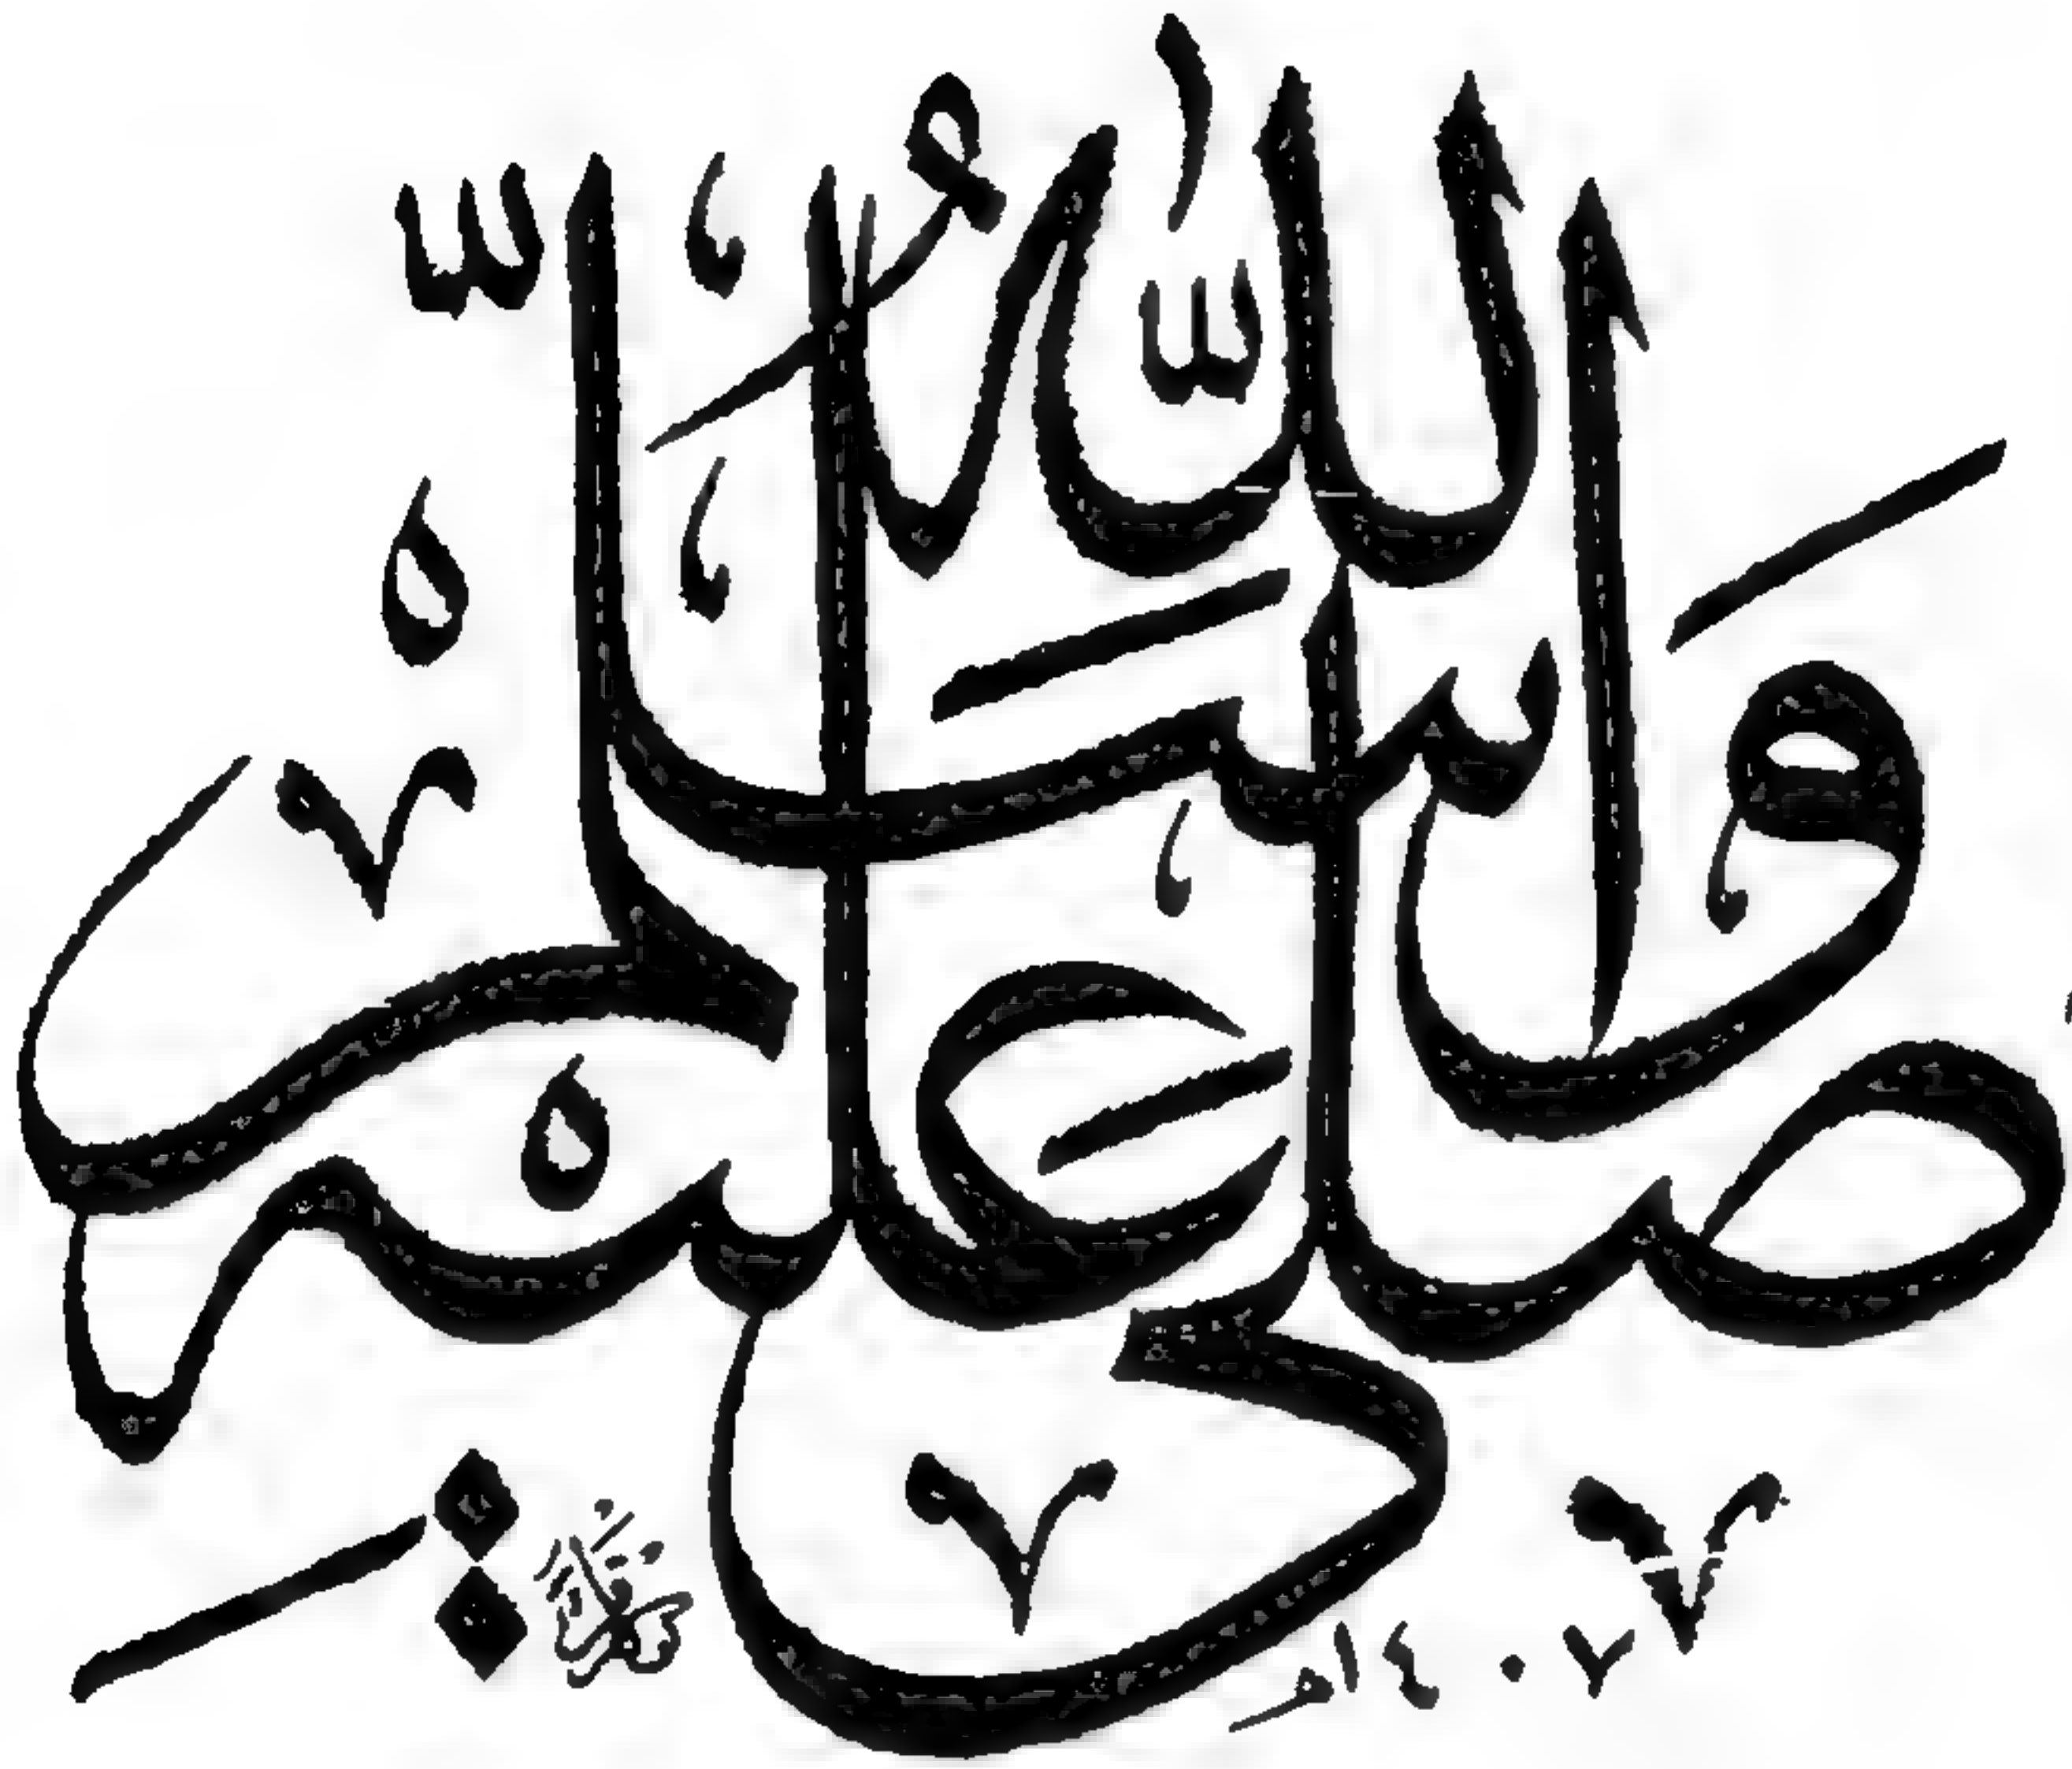 صلى الله عليه وسلم
١٤٠٧هـ